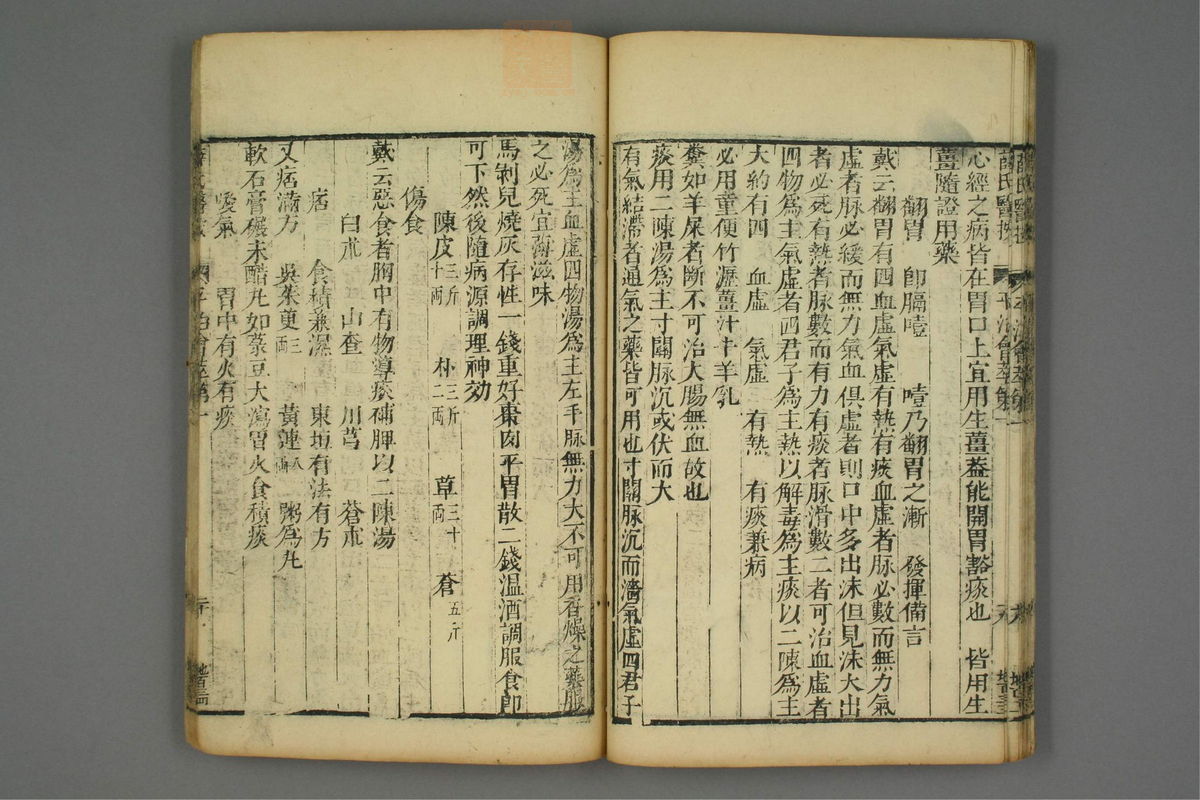 心經之病皆在胃口上宜用生薑葢能開胃豁痰也　皆用生
薑隨證用藥
翻胃　卽膈噎　噎乃翻胃之漸　發揮備言
戴云翻胃有四血虛氣虛有熱有痰血虛者脉必數而無力氣
虛者脉必緩而無力氣血俱虛者則口中多出沫但見沫大出
者必死有熱者脉數而有力有痰者脉滑數二者可治血虛者
四物爲主氣虛者四君子爲主熱以解毒爲主痰以二陳爲主
大約有四　血虛　氣虛　有熱　有痰兼病
必用童便竹瀝薑汁牛羊乳
糞如羊屎者斷不可治大腸無血故也
痰用二陳湯爲主寸關脉沉或伏而大
有氣結滯者通氣之藥皆可用也寸關脉沉而濇氣虛四君子
湯爲主血虛四物湯爲主左手脉無力大不可用香燥之藥服
之必死宜薄滋味
馬剝兒燒灰存性一錢重好棗肉平胃散二錢温酒調服食卽
可下然後隨病源調理神効
陳皮三斤十兩　朴三斤二兩　草三十兩　蒼五斤
傷食
戴云惡食者胸中有物導痰補脾以二陳湯
白朮　山查　川芎　蒼朮
痞　食積兼濕　東垣有法有方
又痞滿方　吳茱萸三兩　黃蓮八兩　粥爲丸
軟石膏碾末醋丸如菉豆大瀉胃火食積痰
噯氣　胃中有火有痰